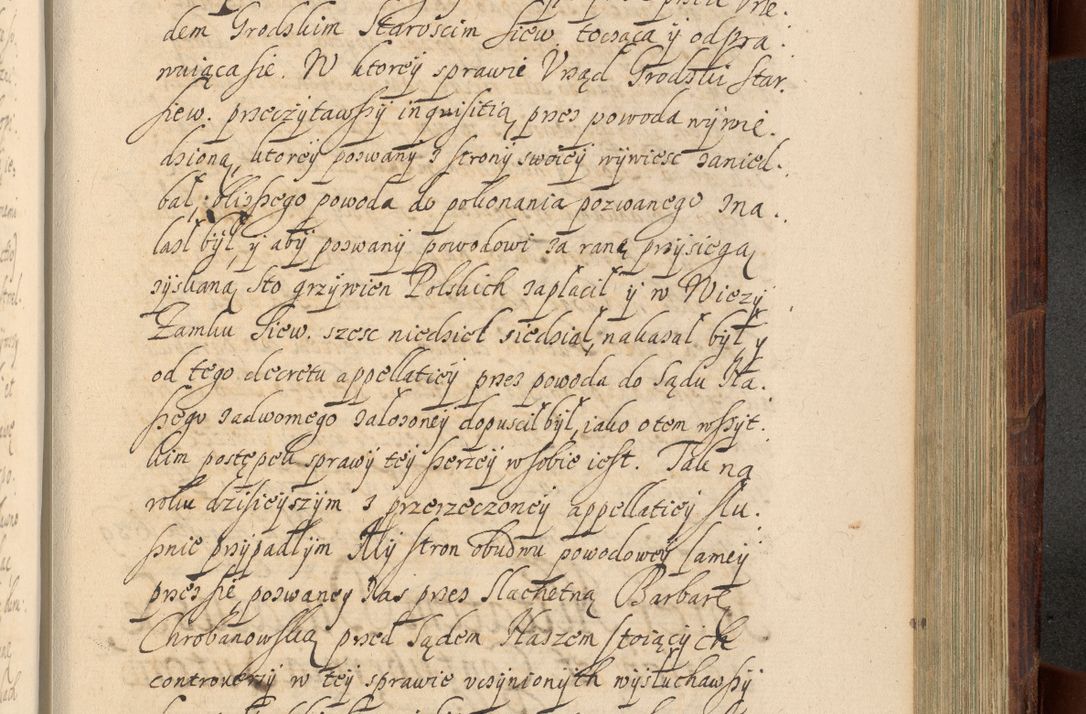 dem Grodskim Staroscim siew. tocząca y odpra.
wuiąca sie. W ktorey sprawie Vrząd Grodzki Star.
siew. przeczytawszy inquisitią, przez powoda wywie.
dzioną, ktorey pozwany z strony swoiey wywiesc zanied.
bał, bliszszego powoda do pokonania pozwanego zna.
lazł był y aby pozwany powodowi za ranę przysięgą
zyskaną, sto grzywien Polskich zapłacił y w Wiezy
Zamku Siew. szesc niedziel siedział, nakazał był y
od tego decretu appellatiey przez powoda do Sądu Na.
szego zadwornego załozoney dopuscił był, iako o tem wszyt.
kim postępek sprawy tey szerzey w sobie iest. Tak na
roku dzisieyszym z przerzeczoney appellatiey słu.
sznie przypadłym My stron obudwu powodowey samey
przez sie pozwaney zas przez Slachetną Barbarę
Chrobanowską przed Sądem Naszem stoiących
controverÿ w tey sprawie vczynionych wysłuchawszy